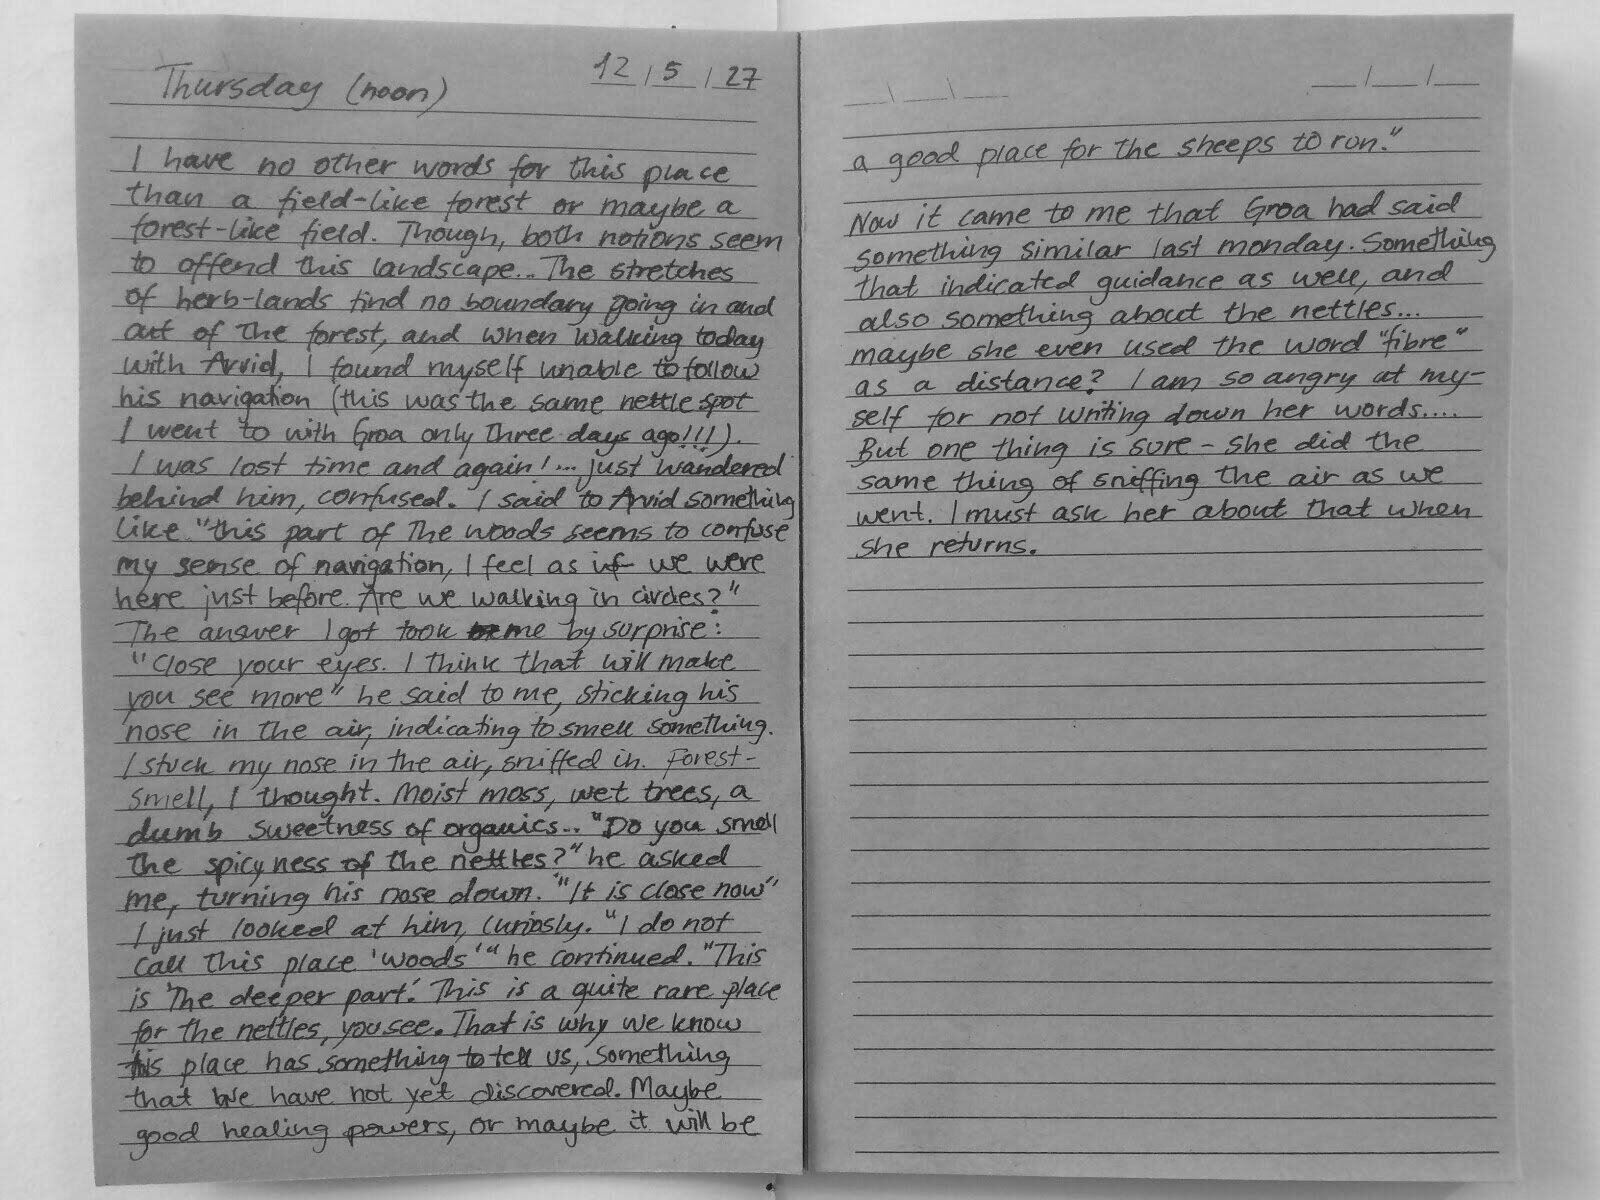 Thursday (noon) 12/5/27
I have no other words for this place
than a field-like forest or maybe a
forest-like field. Though, both notions seem
to offend this landscape... The stretches
of herb-lands find no boundary going in and
out of the forest, and when walking today
with Arvid, I found myself unable to follow
his navigation (this was the same nettle spot
I went to with Groa only three days ago!!!).
I was lost time and again!... just wandered
behind him, confused. I said to Arvid something
like "this part of the woods seems to confuse
my sense of navigation, I feel as if we were
here just before. Are we walking in circles?"
The answer I got took me by surprise:
"Close your eyes. I think that will make
you see more" he said to me, sticking his
nose in the air, indicating to smell something.
I stuck my nose in the air, sniffed in. Forest-
smell, I thought. Moist moss, wet trees, a
dumb sweetness of organics... "Do you smell
the spicyness of the nettles?" he asked
me, turning his nose down. "It is close now"
I just looked at him, curiosly. "I do not
call this place 'woods'" he continued. "This
is 'The deeper part'. This is a quite rare place
for the nettles, you see. That is why we know
this place has something to tell us, something
that we have not yet discovered. Maybe
good healing powers, or maybe it will be
a good place for the sheeps to run."
Now it came to me that Groa had said
something similar last monday. Something
that indicated guidance as well, and
also something about the nettles...
maybe she even used the word "fibre"
as a distance? I am so angry at my-
self for not writing down her words....
But one thing is sure - she did the
same thing of sniffing the air as we
went. I must ask her about that when
she returns.